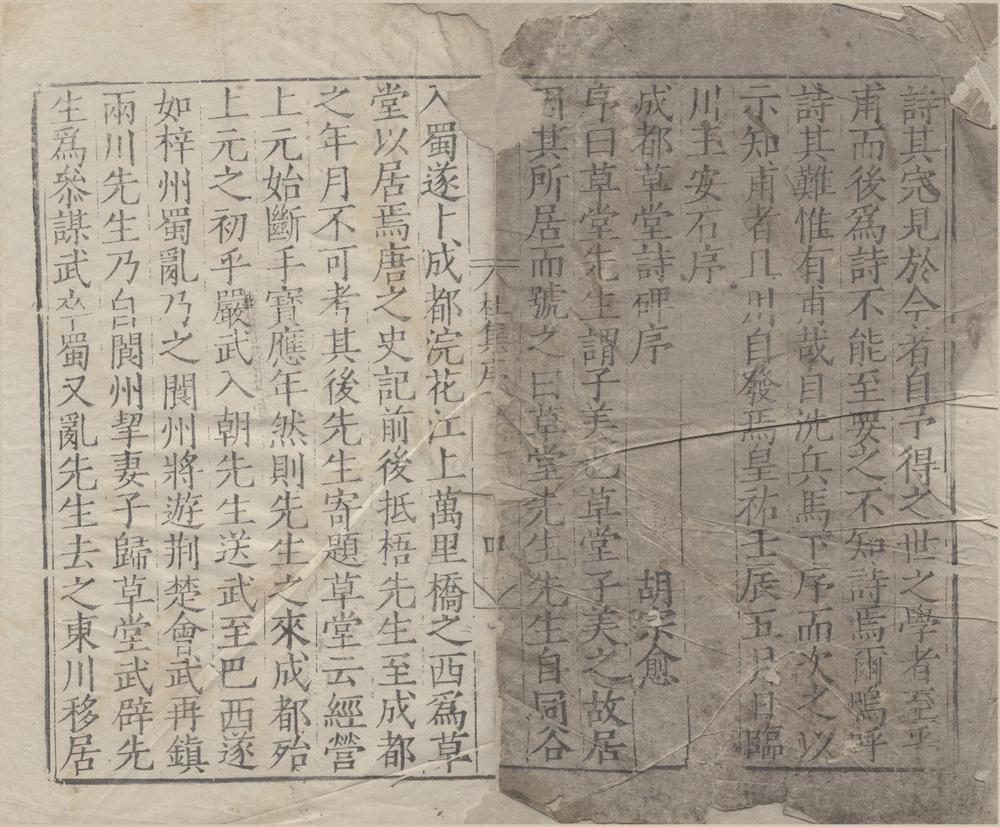 詩其㝡見於今者自予得之世之學者至乎
甫而後爲詩不能至要之不知詩焉爾嗚呼
詩其難惟有甫哉自洗兵馬下序而次之以
示知甫者且用自發焉皇祐壬辰五月日臨
川王安石序
成都草堂詩碑序 胡宗愈
序曰草堂先生謂子美也草堂子美之故居
因其所居而號之曰草堂先生先生自同谷
杜集序
四
入蜀遂卜成都浣花江上萬里橋之西爲草
堂以居焉唐之史記前後抵梧先生至成都
之年月不可考其後先生寄題草堂云經營
上元始斷手寶應年然則先生之來成都殆
上元之初乎嚴武入朝先生送武至巴西遂
如梓州蜀亂乃之閬州將遊荆楚會武再鎮
兩川先生乃自閬州挈妻子歸草堂武辟先
生爲叅謀武卒蜀又亂先生去之東川移居